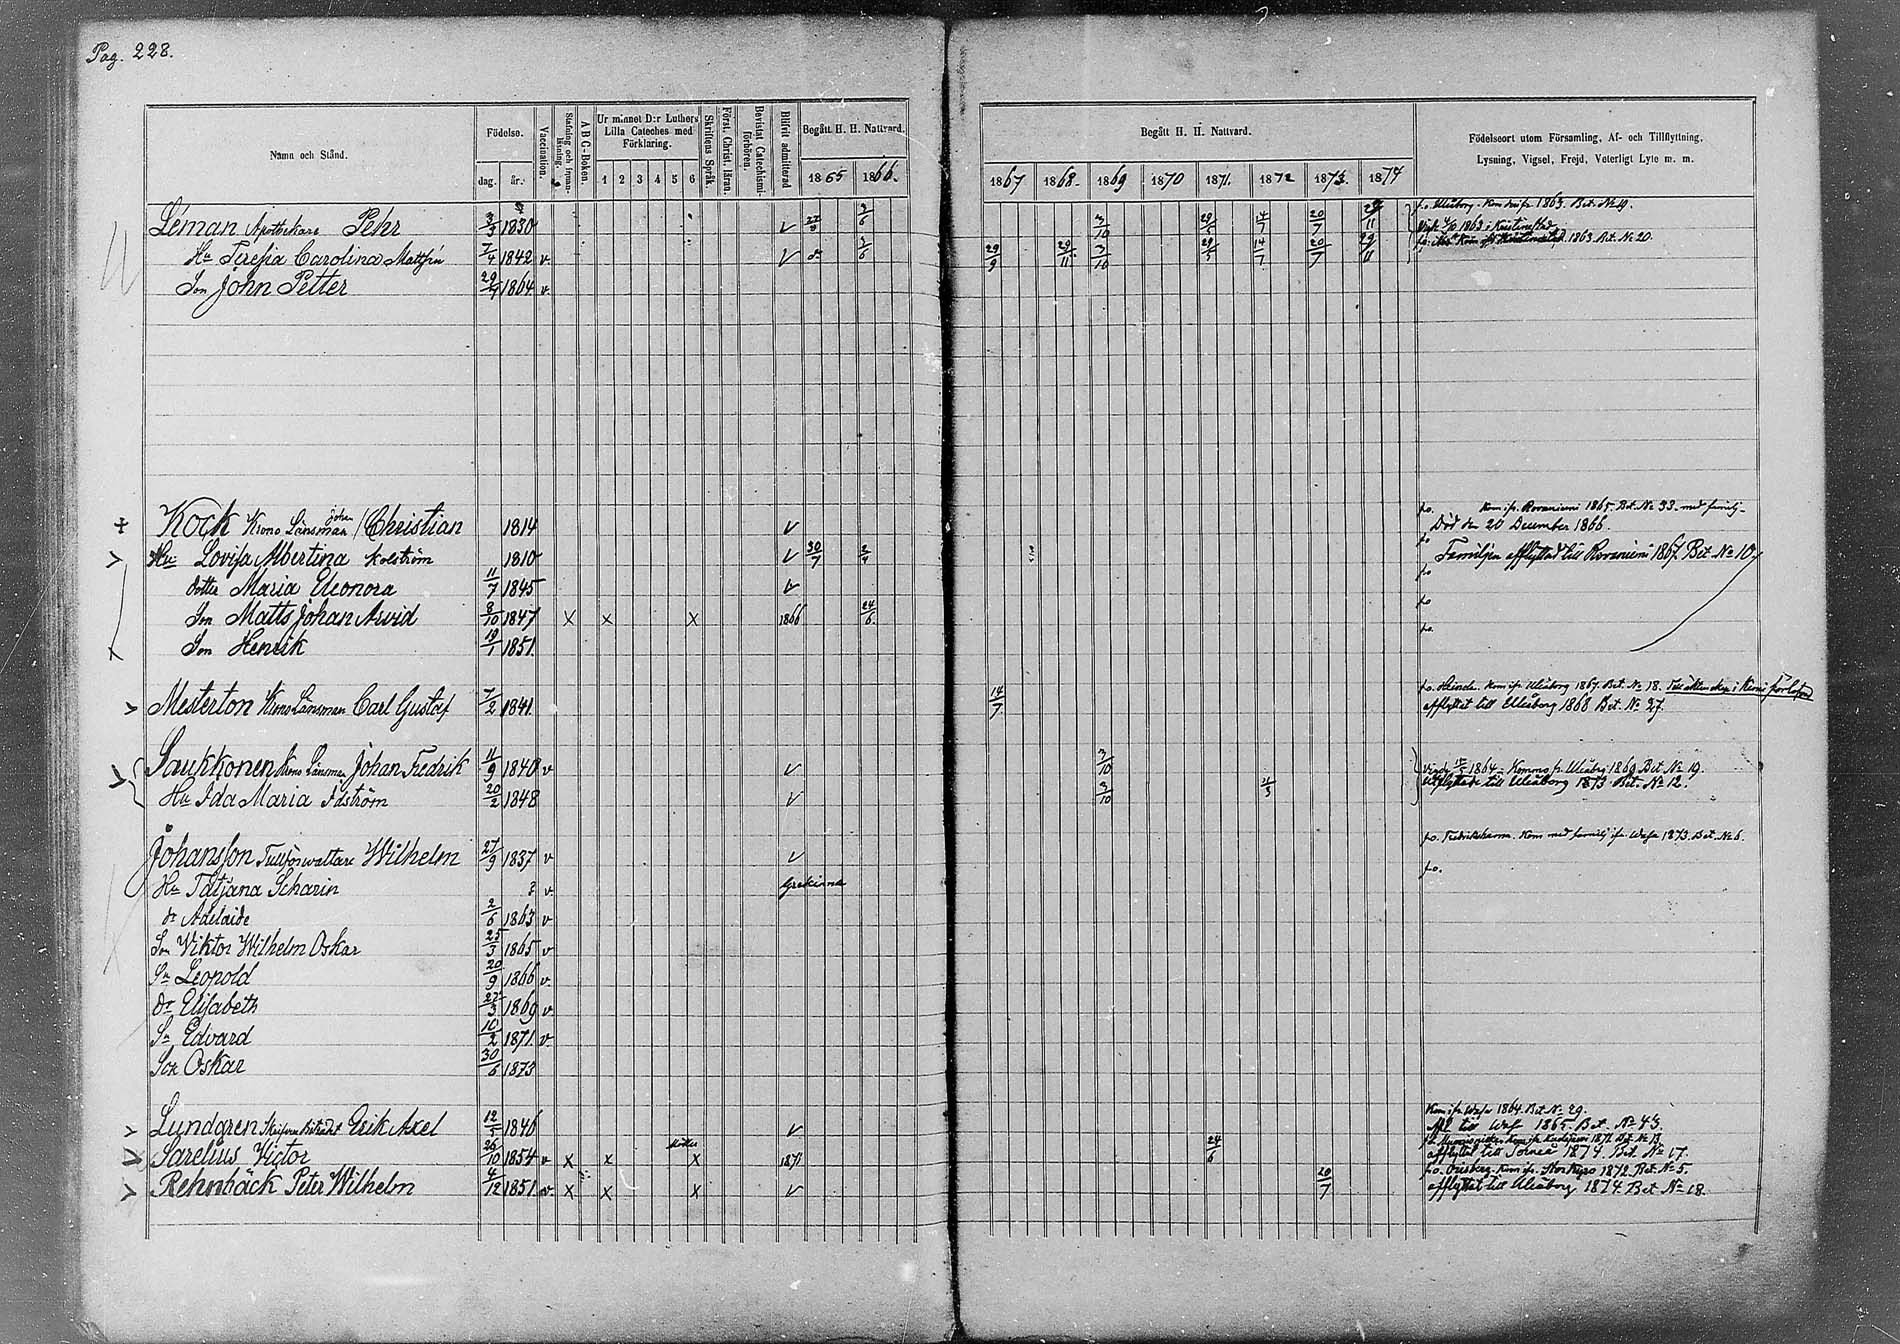 Pag. 228.
Namn och Stånd.
Födelse.
dag. år.
Vaccination.
Stafning och innanläsning.
A B C-Boken.
Ur minnet D:r Luthers Lilla Cateches med Förklaring.
1 2 3 4 5 6
Skriftens Språk.
Först. Christ. läran.
Bevistat Catechismiförhören.
Blifvit admitterad
Begått H. H. Nattvard.
1865 1866.
Begått H. H. Nattvard.
1867 1868. 1869 1870 1871. 1872 1873. 1874
Födelseort utom Församling, Af- och Tillflyttning,
Lysning, Vigsel, Frejd, Veterligt Lyte m. m.
Léman Apothekare Pehr 3/3 1830 v 3/6 3/10 29/5 14/7 20/7 29/11 fo. Uleåborg. Kom 1863. Bet. No 19.
Hu Teresia Carolina Matthén 7/4 1842 v. v do 3/6 29/9 29/11 3/10 29/5 14/7 20/7 29/11 1863 Bet. No 20.
Son John Petter 29/7 1864 v.
Kock Krono Länsman Johan Christian 1814 v fo. Kom ifr. Rovaniemi 1865. Bet. No 33. med familj.
Död den 20 December 1866.
Hu Lovisa Albertina Kolström 1810 v 30/7 2/4 fo Familjen afflyttad till Rovaniemi 1867. Bet. No 10.
dotter Maria Eleonora 11/7 1845 v fo
Son Matts Johan Arvid 8/10 1847 x x x 1866 24/6. fo
Son Henrik 19/1 1851. fo.
Mesterton Krono Länsman Carl Gustaf 7/2 1841. 14/7. fo. Kom ifr. Uleåborg 1867. Bet. No 18.
afflyttat till Uleåborg 1868 Bet. No 27.
Saukkonen Krono Länsman Johan Fredrik 11/9 1840 v v 3/10 1864. Uleåbrg 1869 Bet. No 19.
Hu Ida Maria Idström 20/2 1848 v 3/10 till Uleåborg 1873 Bet. No 12.
Johansson Tullförvaltare Wilhelm 27/9 1837 v v fo. Fredrikshamn. Kom med familj ifr. Wasa 1873. Bet. No 6.
Hu Tatjana Scharin ? v Grekinna fo.
dr Adelaide 2/6 1863 v
Son Viktor Wilhelm Oskar 25/3 1865 v
Sn Leopold 20/9 1866 v
dr Elisabeth 27/3 1869 v
Sn Edvard 10/2 1871. v.
Son Oskar 30/6 1873
Lundgren Erik Axel 12/5 1846 v Kom ifr. Wasa 1864. Bet. No 29.
till Wasa 1865. Bet. No 43.
Sarelius Victor 26/10 1854 v x x x 1871 24/6 Kom ifr. 1871 Bet. No 13
afflyttat till Torneå 1874. Bet. No 17.
Rehnbäck Peter Wilhelm 4/12 1851. v. x x x v 20/7 fo. Kom ifr. Storkyro 1872. Bet. No 5.
afflyttat till Uleåborg 1874. Bet No 18.